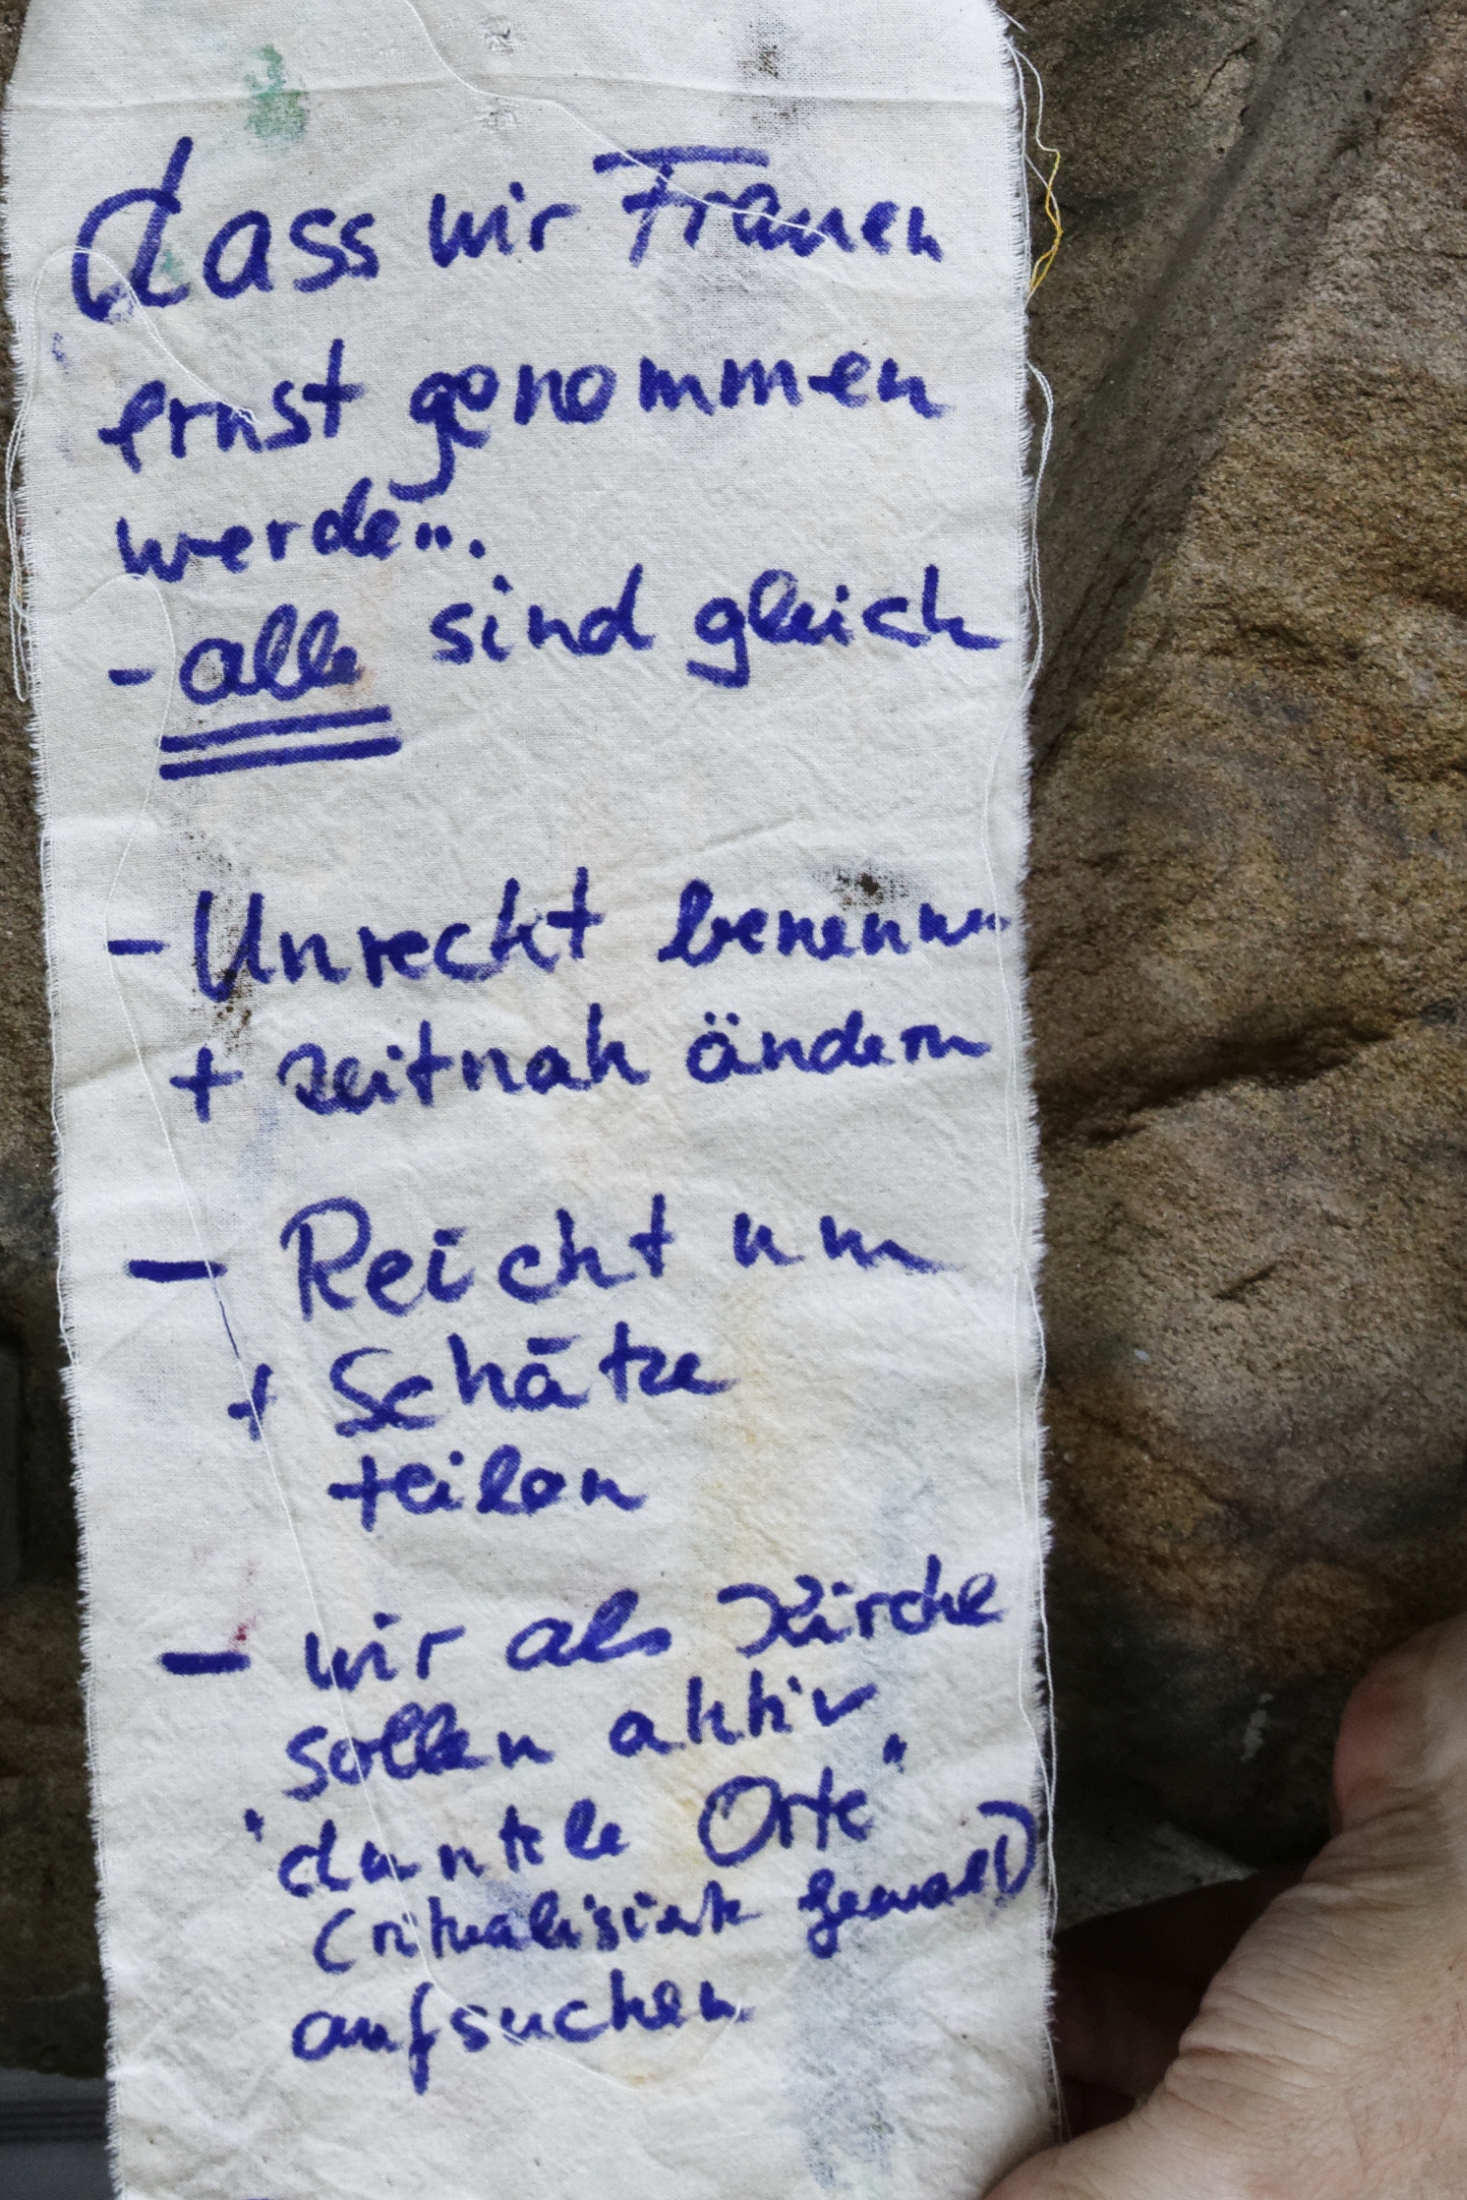 dass wir Frauen
ernst genommen
werden.
- alle sind gleich
- Unrecht benennen
+ zeitnah ändern
- Reichtum
+ Schätze
teilen
- wir als Kirche
sollen aktiv
"dunkle Orte"
(ritualisierte Gewalt)
aufsuchen